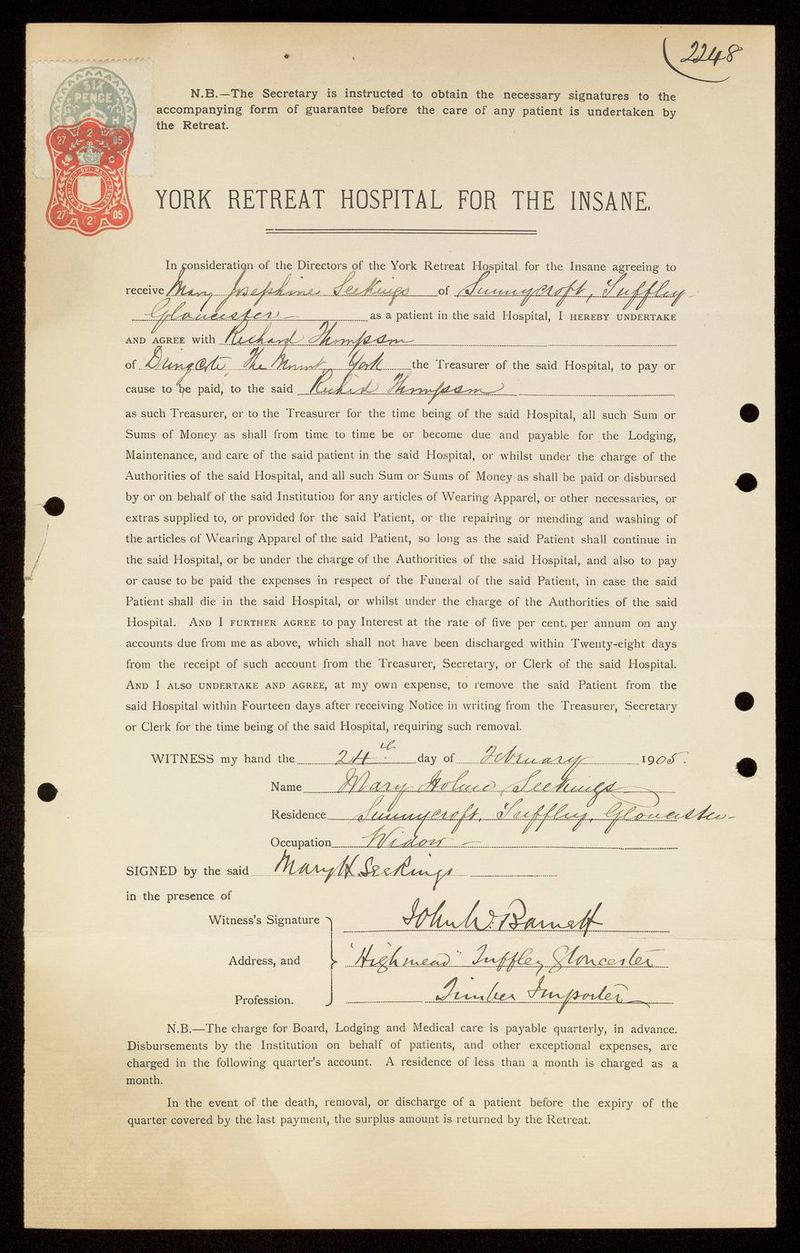 2248
SIX
PENCE
H
27 2 05
27 2 05
N.B.—The Secretary is instructed to obtain the necessary signatures to the
accompanying form of guarantee before the care of any patient is undertaken by
the Retreat.
YORK RETREAT HOSPITAL FOR THE INSANE.
In consideration of the Directors of the York Retreat Hospital for the Insane agreeing to
receive Mary Josephine Seekings of Sunnycroft, Tuffley
Gloucester as a patient in the said Hospital, I HEREBY UNDERTAKE
AND AGREE with Richard Thompson
of Dringcote, The Mount, York the Treasurer of the said Hospital, to pay or
cause to be paid, to the said Richard Thompson
as such Treasurer, or to the Treasurer for the time being of the said Hospital, all such Sum or
Sums of Money as shall from time to time be or become due and payable for the Lodging,
Maintenance, and care of the said patient in the said Hospital, or whilst under the charge of the
Authorities of the said Hospital, and all such Sum or Sums of Money as shall be paid or disbursed
by or on behalf of the said Institution for any articles of Wearing Apparel, or other necessaries, or
extras supplied to, or provided for the said Patient, or the repairing or mending and washing of
the articles of Wearing Apparel of the said Patient, so long as the said Patient shall continue in
the said Hospital, or be under the charge of the Authorities of the said Hospital, and also to pay
or cause to be paid the expenses in respect of the Funeral of the said Patient, in case the said
Patient shall die in the said Hospital, or whilst under the charge of the Authorities of the said
Hospital. AND I FURTHER AGREE to pay Interest at the rate of five per cent. per annum on any
accounts due from me as above, which shall not have been discharged within Twenty-eight days
from the receipt of such account from the Treasurer, Secretary, or Clerk of the said Hospital.
AND I ALSO UNDERTAKE AND AGREE, at my own expense, to remove the said Patient from the
said Hospital within Fourteen days after receiving Notice in writing from the Treasurer, Secretary
or Clerk for the time being of the said Hospital, requiring such removal.
WITNESS my hand the 24th day of February 1905.
Name Mary Holmes Seekings
Residence Sunnycroft, Tuffley, Gloucester
Occupation Widow
SIGNED by the said Mary H Seekings
in the presence of
Witness's Signature John W. Barnett
Address, and "Highmead" Tuffley Gloucester
Profession. Timber Importer
N.B.—The charge for Board, Lodging and Medical care is payable quarterly, in advance.
Disbursements by the Institution on behalf of patients, and other exceptional expenses, are
charged in the following quarter's account. A residence of less than a month is charged as a
month.
In the event of the death, removal, or discharge of a patient before the expiry of the
quarter covered by the last payment, the surplus amount is returned by the Retreat.